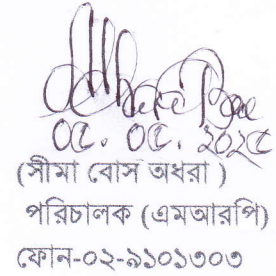 ০৫. ০৫. ২০২৫
(সীমা বোস অধরা )
পরিচালক (এমআরপি)
ফোন-০২-৯১০১৩০৩